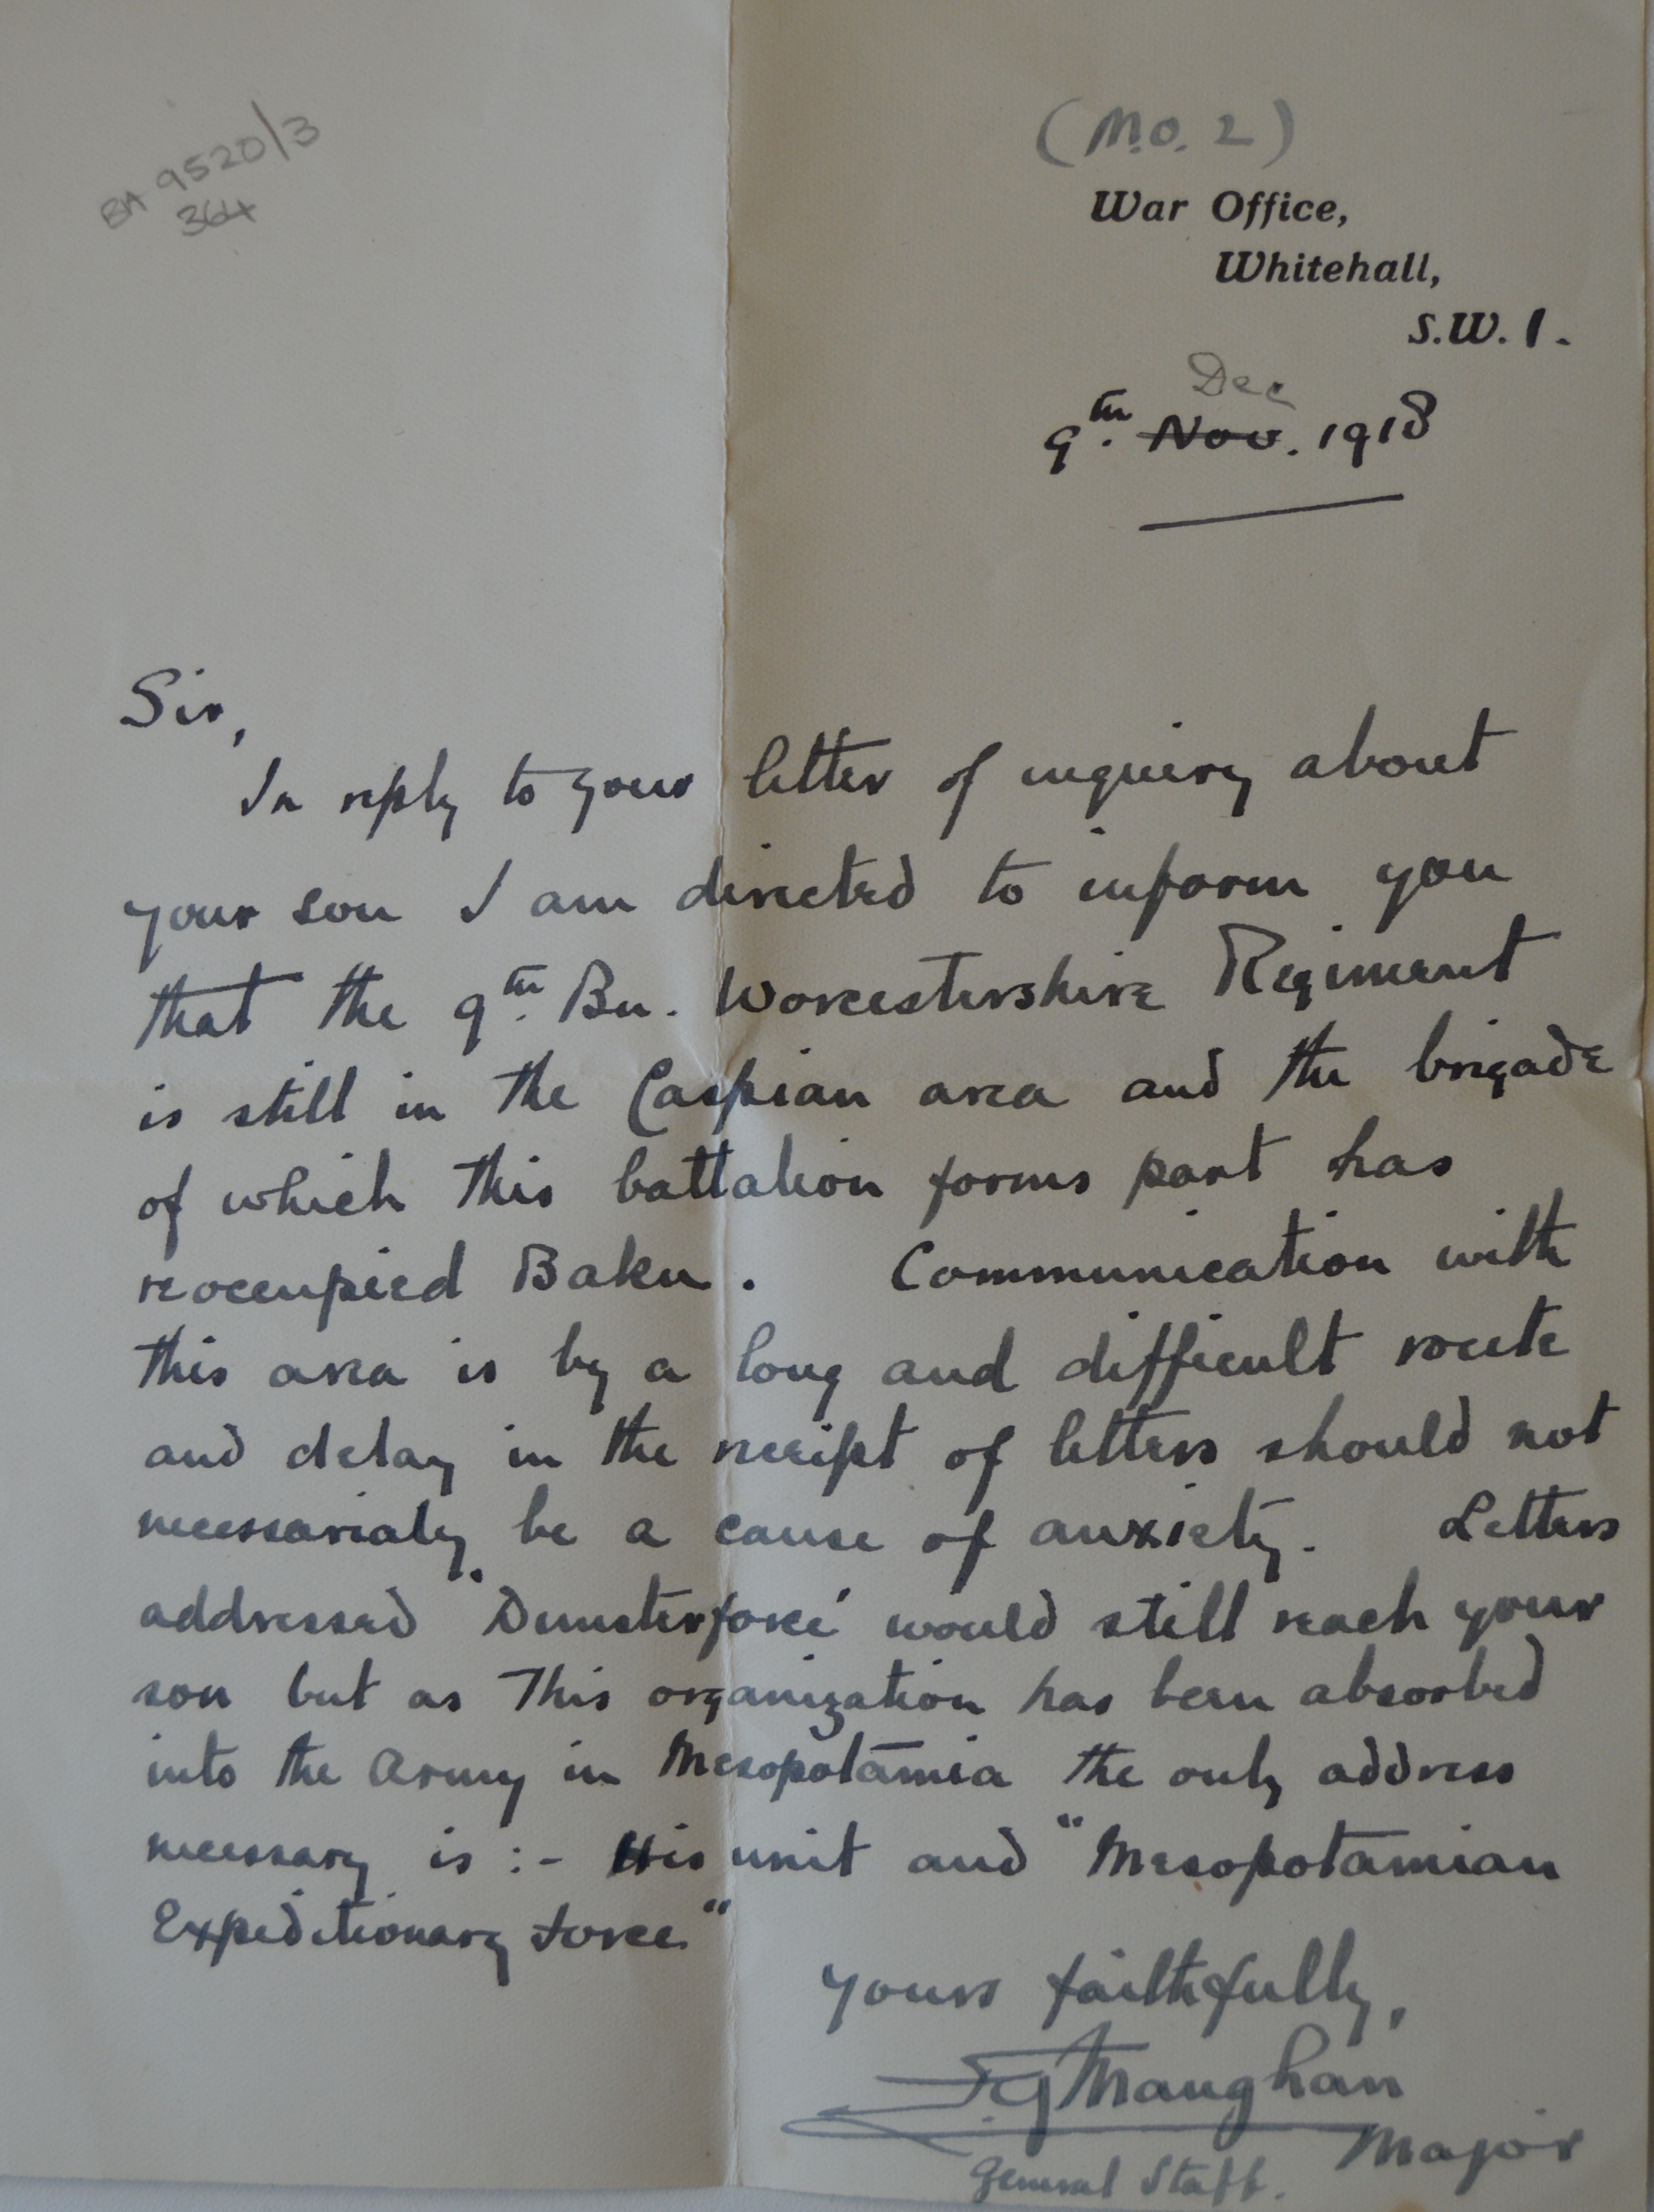 BA 9520/3
364
(M.O. 2)
War Office,
Whitehall,
S.W. 1.
Dec
9th. Nov. 1918
Sir,
In reply to your letter of inquiry about
your son I am directed to inform you
that the 9th. Bn. Worcestershire Regiment
is still in the Caspian area and the brigade
of which this battalion forms part has
reoccupied Baku. Communication with
this area is by a long and difficult route
and delay in the receipt of letters should not
necessarialy be a cause of anxiety. Letters
addressed "Dunsterforce" would still reach your
son but as this organization has been absorbed
into the Army in Mesopotamia the only address
necessary is :- His unit and "Mesopotamian
Expeditionary Force"
Yours faithfully,
Maughan
Major
General Staff.